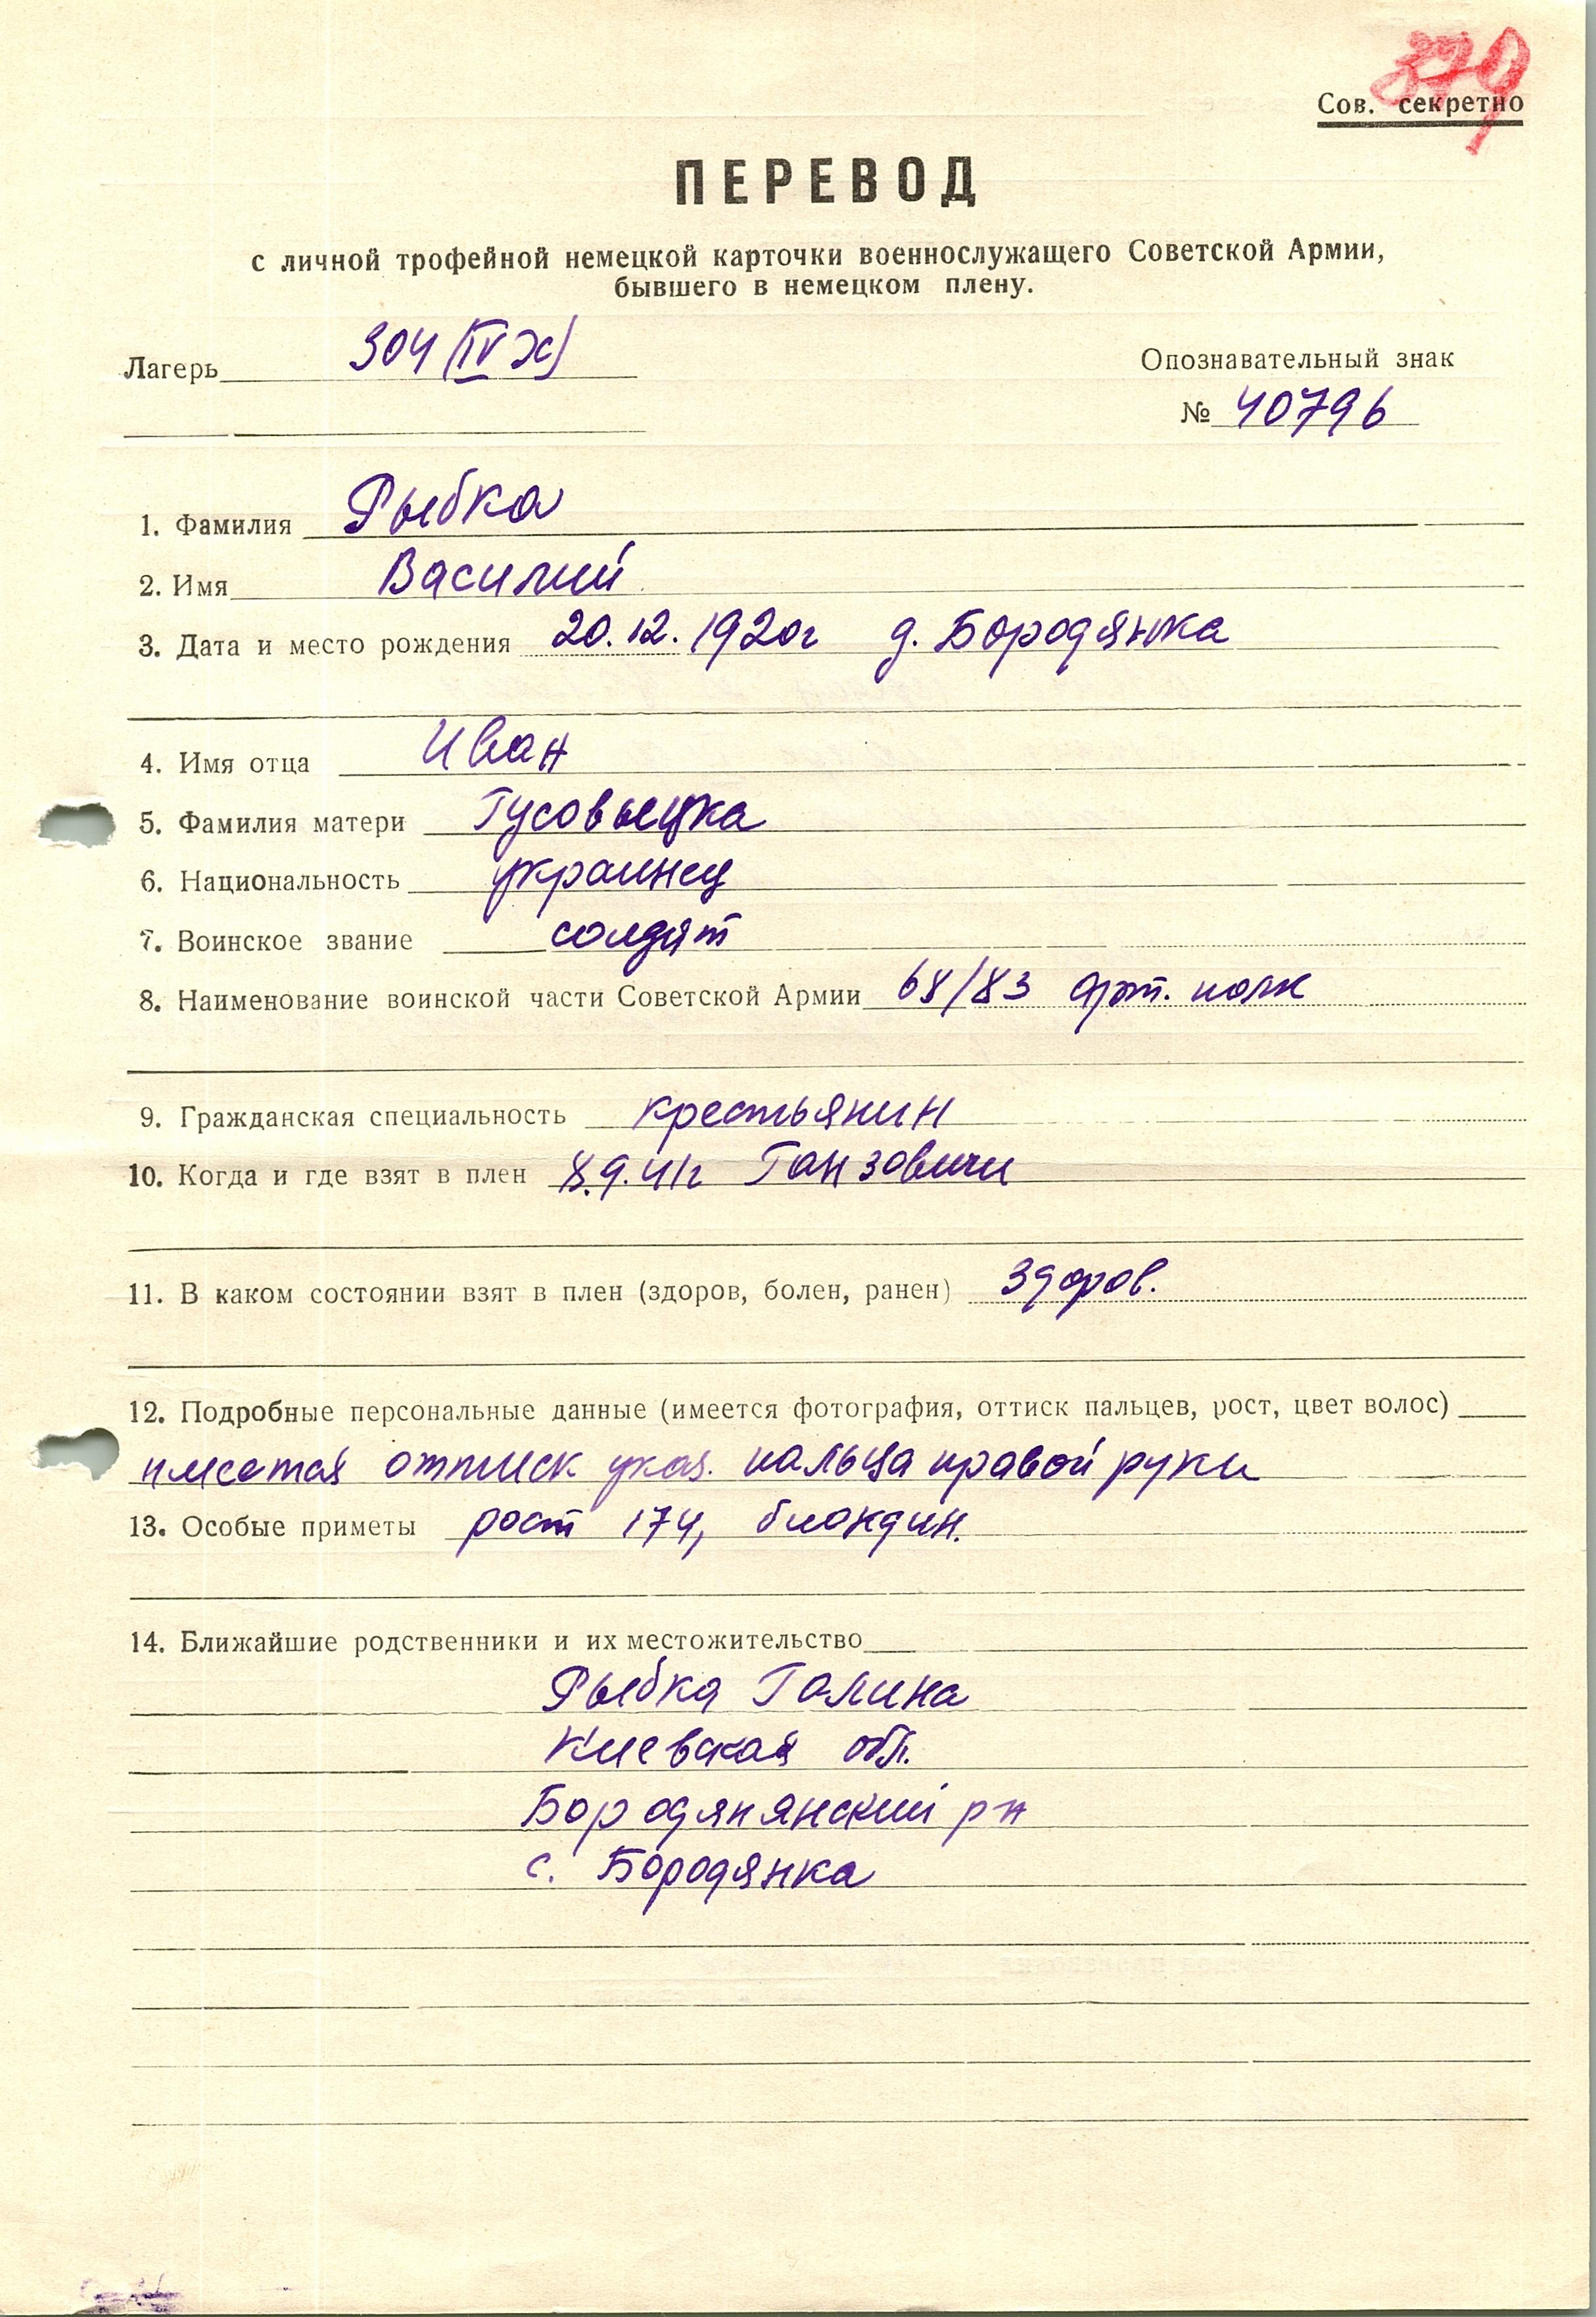 379
Сов. секретно
ПЕРЕВОД
с личной трофейной немецкой карточки военнослужащего Советской Армии,
бывшего в немецком плену.
Лагерь 304 (IV Н)
Опознавательный знак
№ 40796
1. Фамилия Рыбка
2. Имя Василий
3. Дата и место рождения 20.12.1920г д. Бородянка
4. Имя отца Иван
5. Фамилия матери Гусовыцка
6. Национальность украинец
7. Воинское звание солдат
8. Наименование воинской части Советской Армии 68/83 арт. полк
9. Гражданская специальность крестьянин
10. Когда и где взят в плен 8.9.41г Ганзовичи
11. В каком состоянии взят в плен (здоров, болен, ранен) здоров.
12. Подробные персональные данные (имеется фотография, оттиск пальцев, рост, цвет волос)
имеется оттиск указ. пальца правой руки
13. Особые приметы рост 174, блондин.
14. Ближайшие родственники и их местожительство
Рыбка Галина
Киевская обл.
Бородянянский рн
с. Бородянка